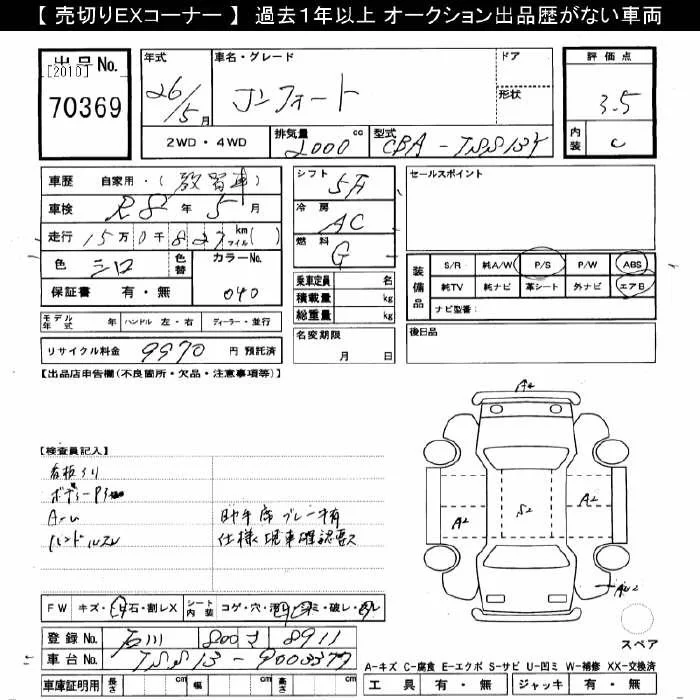 【 売切りEXコーナー 】 過去1年以上 オークション出品歴がない車両
出品 No.
[2010]
70369
年式
26/5月
車名・グレード
コンフォート
ドア
形状
評価点
3.5
内装
C
2WD・4WD
排気量
2000 cc
型式
CBA-TSS13Y
車歴 自家用・(教習車)
車検 R8年5月
走行 15万0千827km マイル( )
色 シロ
色替
カラーNo.
040
保証書 有・無
シフト
5F
冷房
AC
燃料
G
乗車定員 名
積載量 kg
総重量 kg
セールスポイント
装備品
S/R 純A/W P/S P/W ABS
純TV 純ナビ 革シート 外ナビ エアB
ナビ型番:
モデル年式 年
ハンドル 左・右
ディーラー・並行
名変期限
月 日
後日品
リサイクル料金 9970 円 預託済
【出品店申告欄(不良箇所・欠品・注意事項等)】
【検査員記入】
看板
ハンドルスレ
助手席ブレーキ有
仕様現車確認要ス
A2
A2
S2
A2
FW キズ・飛石・割レX
シート内装 コゲ・穴・汚レ・シミ・破レ・スレ
登録 No. 石川 800 す 8911
車台 No. TSS13-9003377
車庫証明用 長さ cm 幅 cm 高さ cm
スペア
A-キズ C-腐食 E-エクボ S-サビ U-凹ミ W-補修 XX-交換済
工具 有・無 ジャッキ 有・無